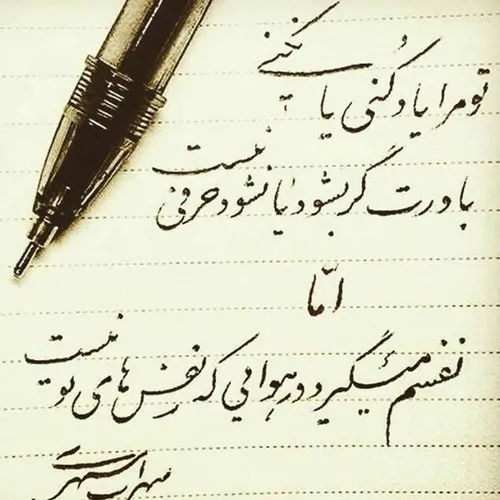 تو مرا یاد کنی یا نکنی
باورت گر بشود یا نشود حرفی نیست
امّا
نفسم میگیرد در هوایی که نفس های تو نیست
سهراب سپهری